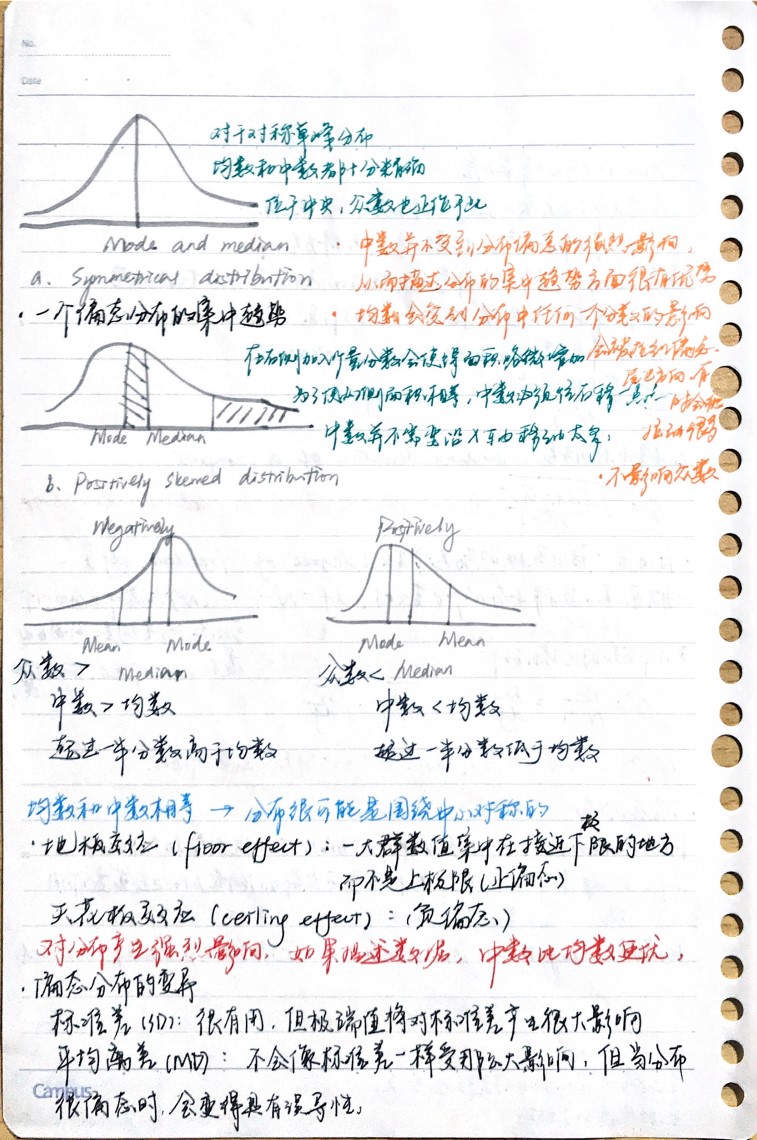 No.
Date
对于对称单峰分布
均数和中数都十分精确
位于中央，众数也正位于此
Mode and median
a. Symmetrical distribution
· 中数并不受到分布偏态的强烈影响，
从而描述分布的集中趋势方面很有优势
· 一个偏态分布的集中趋势
· 均数会受到分布中任何一个分数的影响
会被拉到偏态
尾巴方向，有
时会被
拉动很多
· 不影响众数
在右侧加入少量分数会使得面积略微增加
为了使两侧面积相等，中数必须往右移一点点
中数并不需要沿X轴移动太多。
Mode Median
b. Positively skewed distribution
Negatively
Mean Mode
Median
众数>
中数>均数
超过一半分数高于均数
Positively
Mode Mean
Median
众数<
中数<均数
超过一半分数低于均数
均数和中数相等 → 分布很可能是围绕中心对称的
· 地板效应 (floor effect)：一大群数值集中在接近下极限的地方
而不是上极限(正偏态)
天花板效应 (ceiling effect)：(负偏态)
对分布产生强烈影响，如果描述数据，中数比均数更优。
· 偏态分布的变异
标准差(SD)：很有用，但极端值将对标准差产生很大影响
平均离差(MD)：不会像标准差一样受那么大影响，但当分布
很偏态时，会变得具有误导性。
Campus